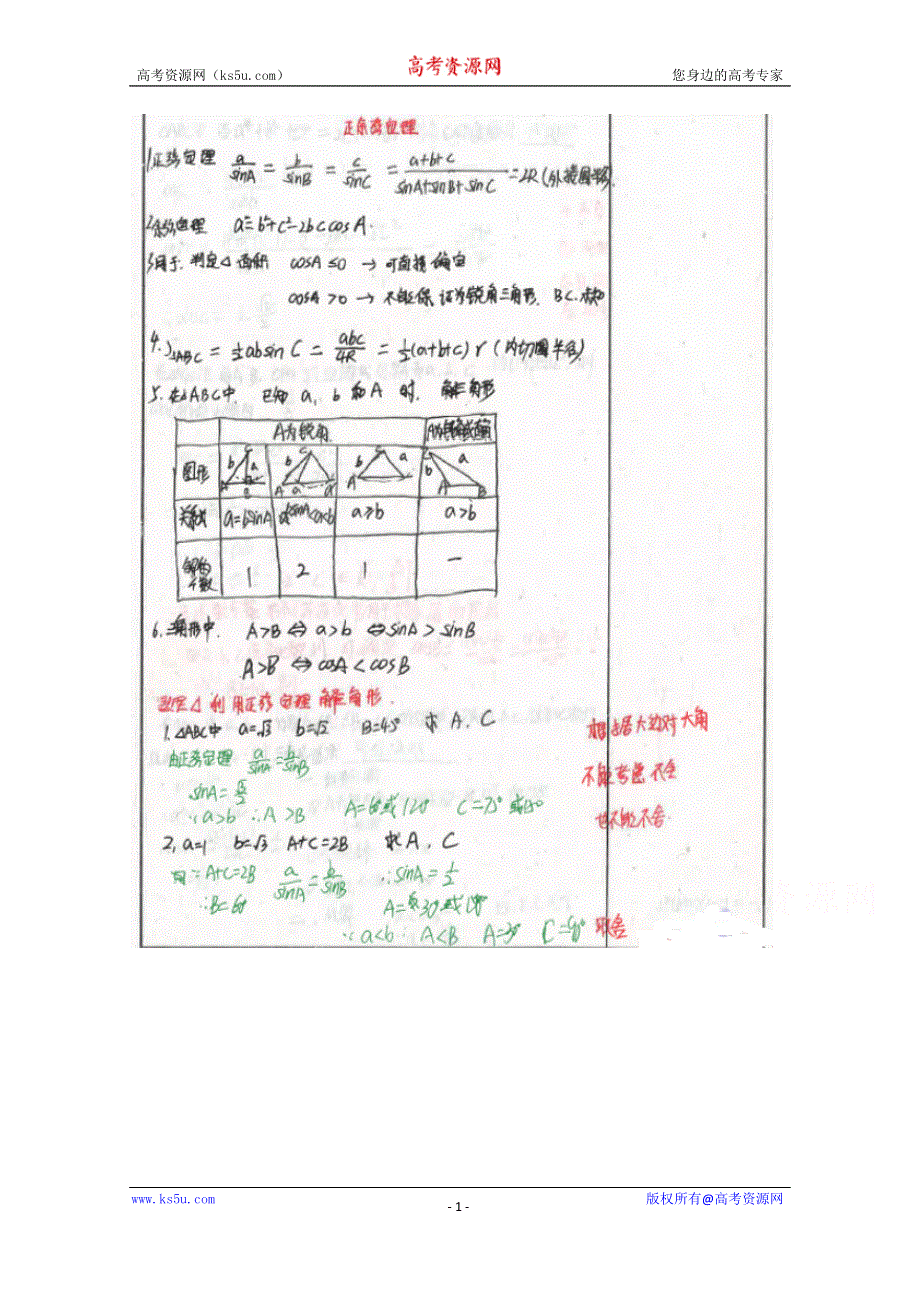 高考资源网（ks5u.com）
高考资源网
您身边的高考专家
正余弦定理
1.正弦定理 a/sinA = b/sinB = c/sinC = (a+b+c)/(sinA+sinB+sinC) = 2R(外接圆半径).
2.余弦定理 a²=b²+c²-2bc cosA.
3.用于.判定△面积 cosA≤0 → 可直接确定
cosA>0 → 不能保证为锐角三角形. B C.未知
4. S△ABC = ½absinC = abc/4R = ½(a+b+c)r(内切圆半径)
5.在△ABC中. 已知 a, b 和 A 时. 解三角形
A为锐角 A为钝角或直角
图形 b a A B C b a A a b a A b a A B
关系式 a=bsinA bsinA<a<b a≥b a>b
解的个数 1 2 1 一
6.三角形中. A>B⇔a>b⇔sinA>sinB
A>B⇔cosA<cosB
题型△ 利用正弦定理解三角形.
1.△ABC中 a=√3 b=√2 B=45° 求 A.C
由正弦定理 a/sinA=b/sinB
sinA=√3/2
∵a>b ∴A>B A=60°或120° C=75°或15°
根据大边对大角
不能考虑不全
也不能不舍
2, a=1 b=√3 A+C=2B 求A, C
∵A+C=2B a/sinA=b/sinB ∴sinA=½
∴B=60° A=30°或150°
∵a<b ∴A<B A=30° C=90°
资源网
www.ks5u.com
- 1 -
版权所有@高考资源网